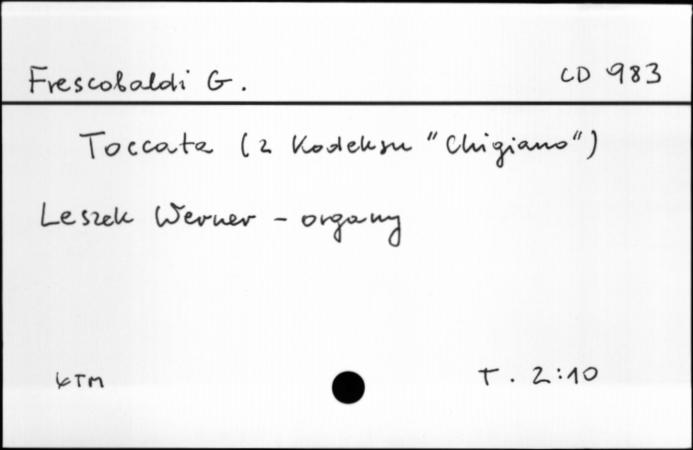 Frescobaldi G.
CD 983
Toccata (z Kodeksu "Chigiano")
Leszek Werner - organy
KTM
T. 2:10